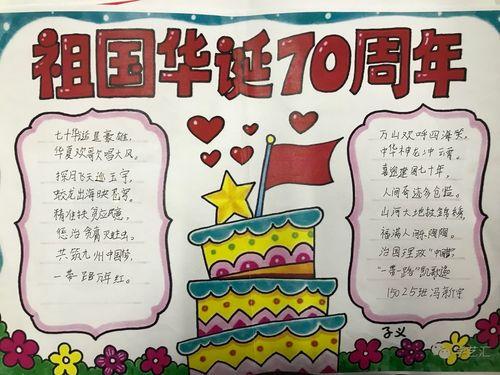 祖国华诞70周年
七十华诞显豪雄,
华夏欢歌唱大风。
探月飞天巡玉宇,
蛟龙出海映苍穹。
精准扶贫应民意,
惩治贪腐灭蛀虫。
共筑九州中国梦,
一带一路万年红。
万山欢呼四海笑,
中华神龙冲云霄。
喜迎建国七十年,
人间奇迹多
山河大地披锦绣,
福满人间乐陶陶。
治国理政
"一带一路"凯歌
15025班冯新宇
子义
学艺汇